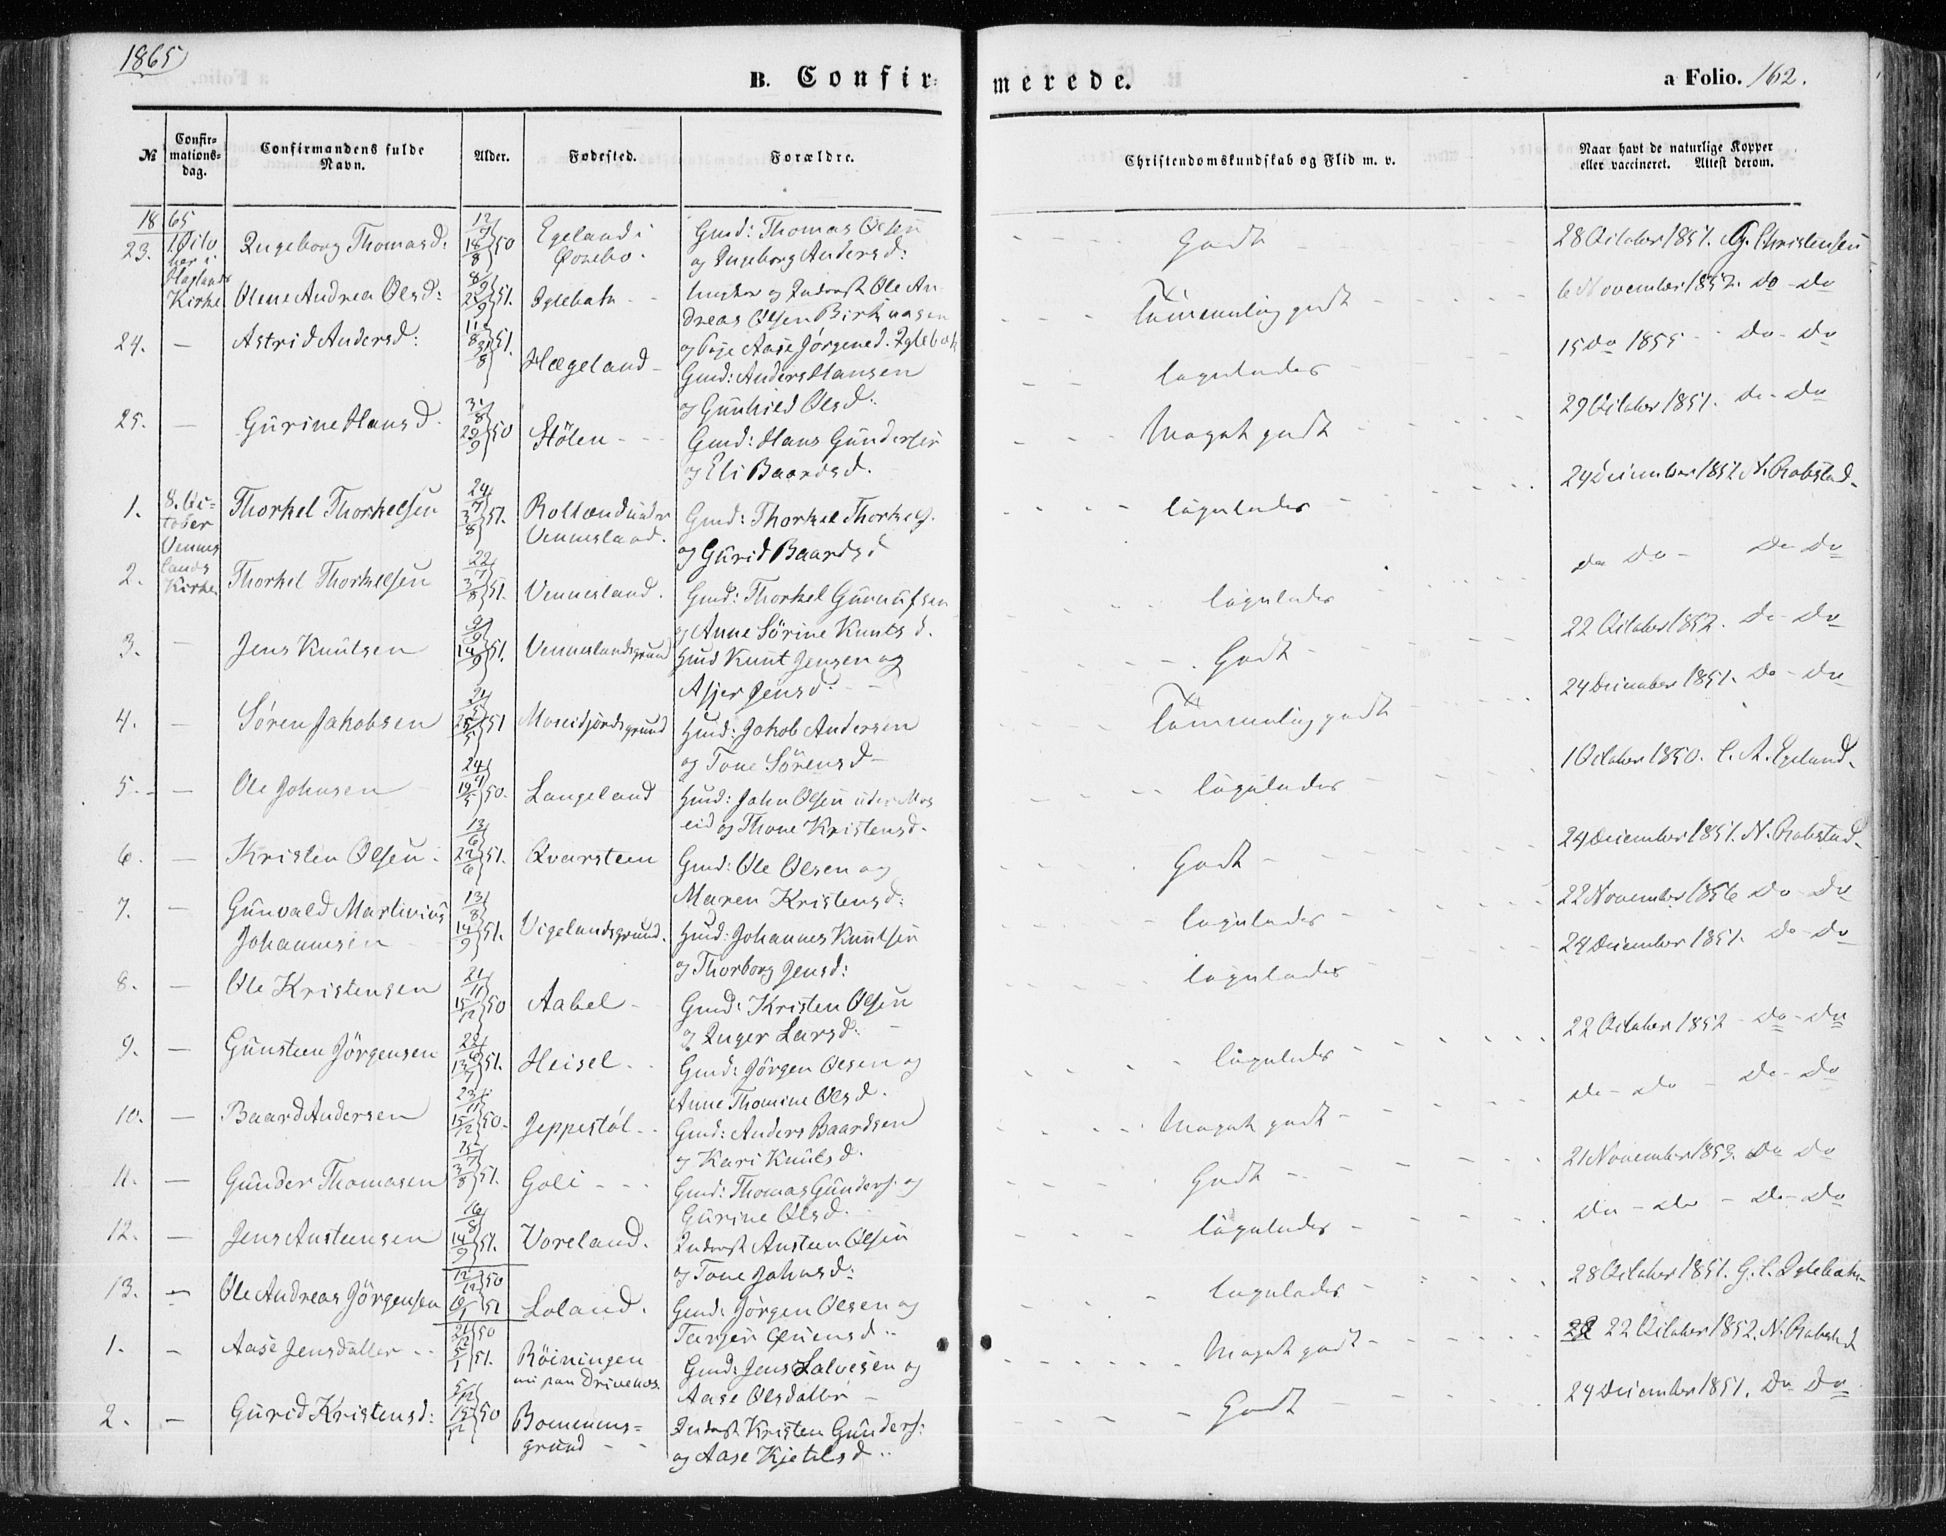 1865
B. Confir=
merede.
a Folio. 162.
№
Confir=
mations=
dag.
Confirmandens fulde
Navn.
Alder.
Fødested.
Forældre.
Christendomskundskab og Flid m. v.
Naar havt de naturlige Kopper
eller vaccineret. Attest derom.
1865
23. 1 Octo
ber i
Hæglands
Kirke
Ingeborg Thomasd: 18/8 50 Egeland i
Øvrebo.
Gmd: Thomas Olsen
og Ingeborg Andersd:
Godt
28 October 1851. G. Christensen
Olene Andrea Olsd: 51. Iglebæk
Ole An
dreas Olsen Birknæsen
og Pige Aase Jørgensd. Iglebæk
Temmelig godt
6 November 1852. do - do
24. — Astrid Andersd: 51. Hægeland
Gmd: Anders Hansen
og Gunhild Olsd:
ligeledes
15 do 1855 - do - do
25. — Gurine Hansd. 50 Stølen
Gmd: Hans Gundersen
og Eli Baardsd.
Meget godt
29 October 1851. do - do
1. 8. Oc=
tober
Vennes
lands
Kirke
Thorkel Thorkelsen 24/7 3/8 51. Rolland under
Vennesland.
Gmd: Thorkel Thorkels.
og Gurid Baardsd
ligeledes
24 December 1852 N. Robstad.
2. Thorkel Thorkelsen 22/7 3/8 51. Vennesland.
Gmd: Thorkel Gunnufsen
og Anne Sørine Knutsd.
ligeledes
do do - do do
3. — Jens Knutsen 9/9 14/9 51. Venneslandsgrund
Hmd Knut Jensen og
Asjer Jensd.
Godt
22 October 1852. do - do
4. — Søren Jakobsen 51 Moseidjordsgrund
Hmd: Jakob Andersen
og Tone Sørensd
Temmelig godt
24 December 1851. do - do
5. — Ole Johnsen 24/4 19/5 50. Langeland
Hmd: John Olsen under Mos
eid og Thone Kristensd.
ligeledes
1 October 1850. C. A. Egeland.
6. — Kristen Olsen 13/6 22/6 51. Qvarsteen
Gmd: Ole Olsen og
Maren Kristensd:
Godt
24 December 1851. N. Robstad.
7. — Gunvald Martinius
Johannesen
13/8 14/9 51. Vigelandsgrund.
Hmd: Johannes Knutsen
og Thorborg Jensd:
ligeledes
22 November 1856 do - do
8. — Ole Kristensen 21/11 15/12 50 Aabel
Gmd: Kristen Olsen
og Inger Larsd:
ligeledes
24 December 1851. do - do
9. — Gunsteen Jörgensen 22/6 13/7 51. Heisel
Gmd: Jørgen Olsen og
Anne Thomine Olsd.
ligeledes
22 October 1852 - do - do
10. — Baard Andersen 23/11 15/12 50. Jeppestøl
Gmd: Anders Baardsen
og Kari Knutsd.
Meget godt
do - do - do - do
11. — Gunder Thomasen 3/8 51. Goli
Gmd: Thomas Gunders. og
Gurine Olsd.
Godt
21 November 1853. do do
12. — Jens Austeensen 16/8 14/9 51. Voreland.
Inderst Austeen Olsen
og Tone Johnsd:
ligeledes
do - do - do - do
13. — Ole Andreas Jörgensen 12/12 50 51 Loland.
Gmd: Jørgen Olsen og
Tarjer d.
ligeledes
28 October 1851. G. C. Iglebæk
1. — Aase Jensdatter 21/12 50 5/1 51. Röiningen
Drivenes.
Gmd: Jens Salvesen og
Aase Olsdatter
Meget godt
22 October 1852. N. Robstad
2. — Gurid Kristensd: 5/12 15/12 50 Bommens=
grund
Inderst Kristen Gunders:
og Aase Kjetelsd
Godt
24 December 1851. do do